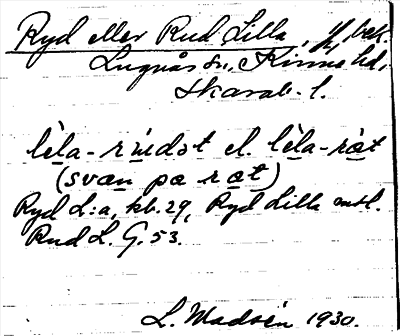 Ryd eller Rud Lilla, 1/2 bek.
Lugnås sn, Kinne hd,
Skarab. l.
lèla-ru̱idət el. lèla-rə̱t
(sva̱n pa rə̱t)
Ryd L:a, kb. 29, Ryd Lilla mtl.
Rud L. G. 53.
L. Madsén 1930.